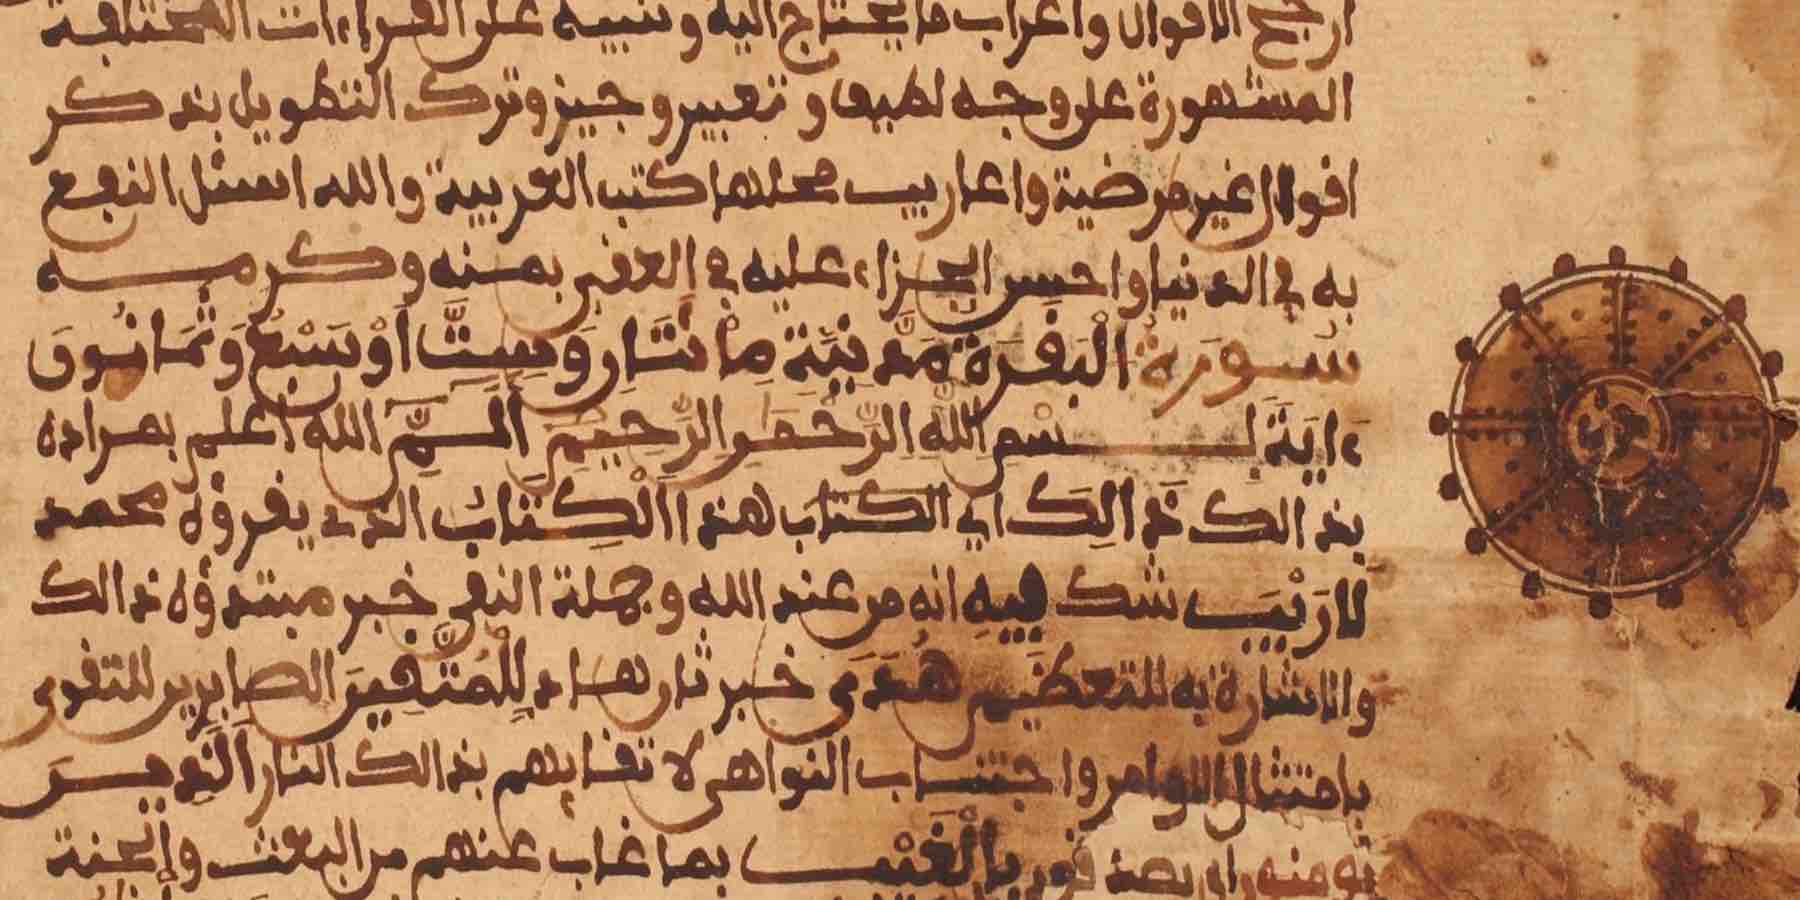 ارجح الاقوال واعراب ما يحتاج اليه وتنبيه على القراءات المختلفة
المشهورة على وجه لطيف و تعبير وجيز وترك التطويل بذكر
اقوال غير مرضية واعاريب محلها كتب العربية والله اسئل النفع
به في الدنيا واحسن الجزاء عليه في العقبى بمنه وكرمه
سُورَةُ الْبَقَرَة مَدَنِيَّة مِاْئَتَانِ وَسِتَّ اَوْ سَبْعُ وَثَمَانُونَ
ءايَةً بِسْمِ اللَّهِ الرَّحْمَنِ الرَّحِيمِ أَلَمَّ الله اعلم بمراده
بذالك ذَالِكَ اي الكتاب هذا اَلْكِتَابُ الذي يقرؤه محمد
لَارَيْبَ شك فِيهِ انه من عند الله وجملة النفي خبر مبتدؤه ذالك
والاشارة به للتعظيم هُدَى خبر ثان هاد لِلْمُتَّقِينَ الصايرين للتقوى
بامتثال الاوامر واجتناب النواهي لاتقايهم بذالك النار اَلَّذِينَ
يومنون اي يصدقون بِالْغَيْبِ بما غاب عنهم من البعث والجنة